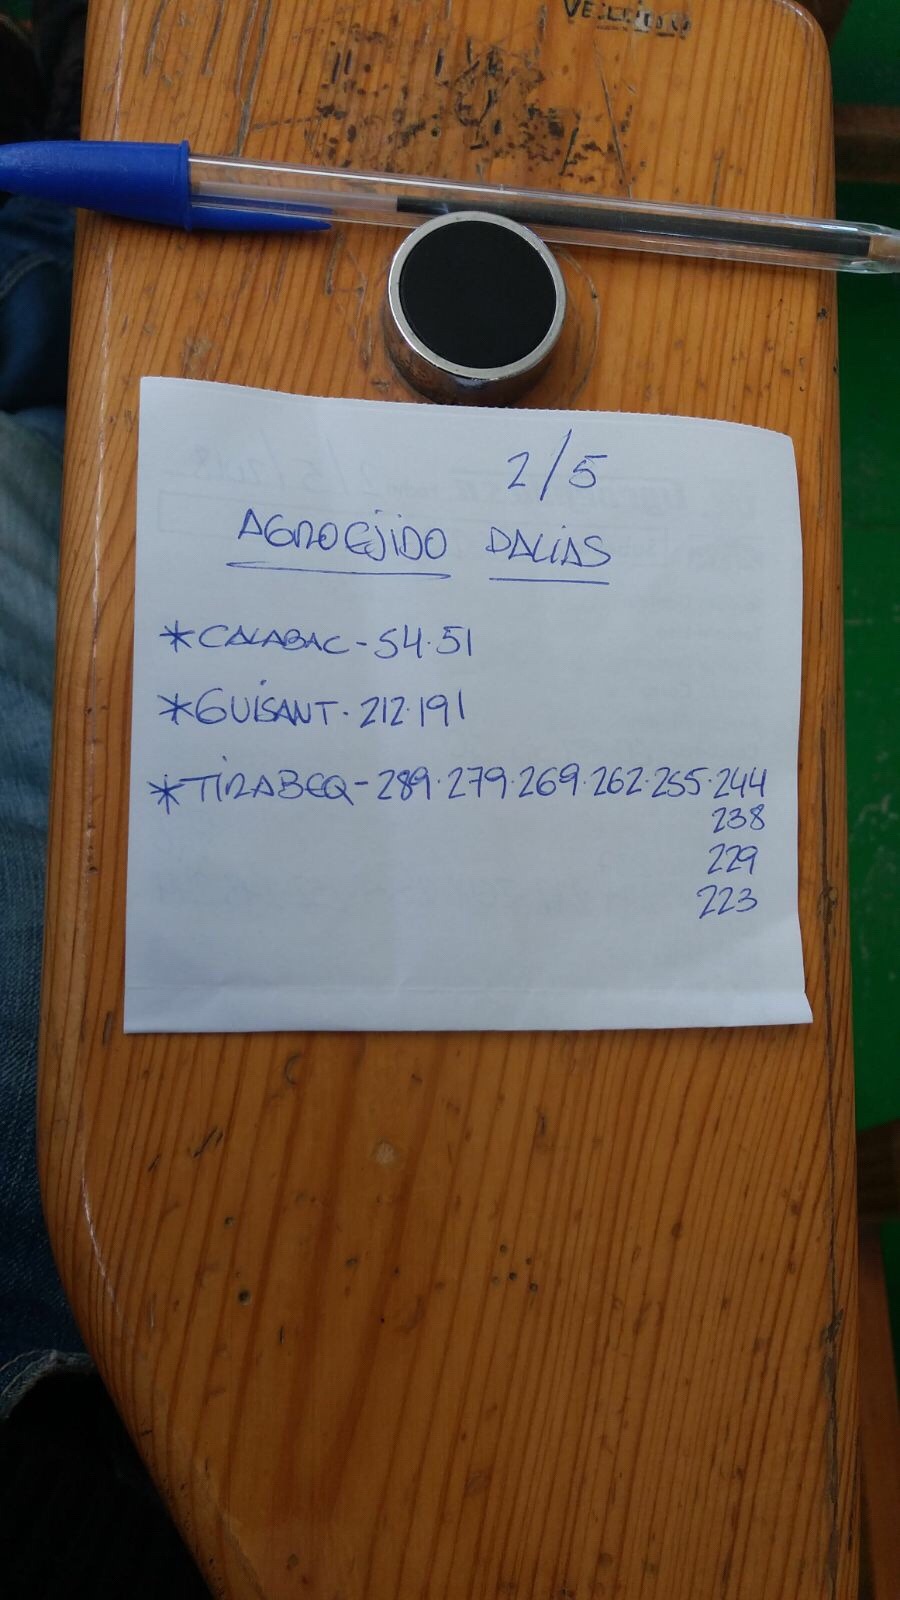 2/5
AGROEJIDO DALIAS
*CALABAC-54.51
*GUISANT.212.191
*TIRABEQ-289.279.269.262.255.244
238
229
223